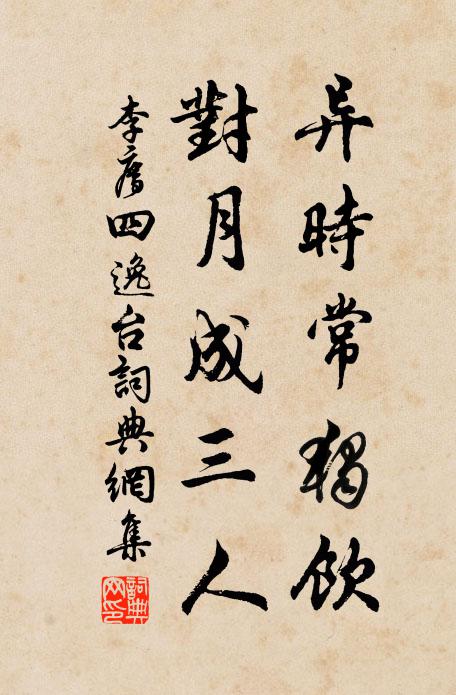 异時常獨飲
對月成三人
李廌四逸台詞典網集
詞典網印